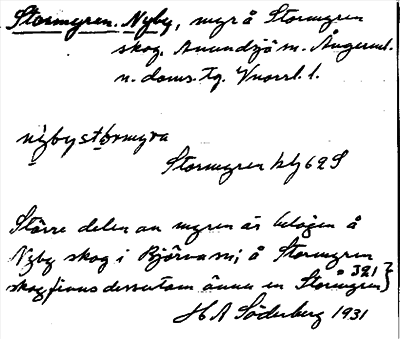 Stormyren. Nyby, myr å Stormyren
skog. Anundsjö sn. Ångerml.
n. doms. tg. Vnorrl. l.
nybystormyra
Stormyren hbg 62 S
Större delen av myren är belägen å
Nyby skog i Björna sn; å Stormyren
skog finns dessutom ännu en Stormyren}
321
H A Söderberg 1931